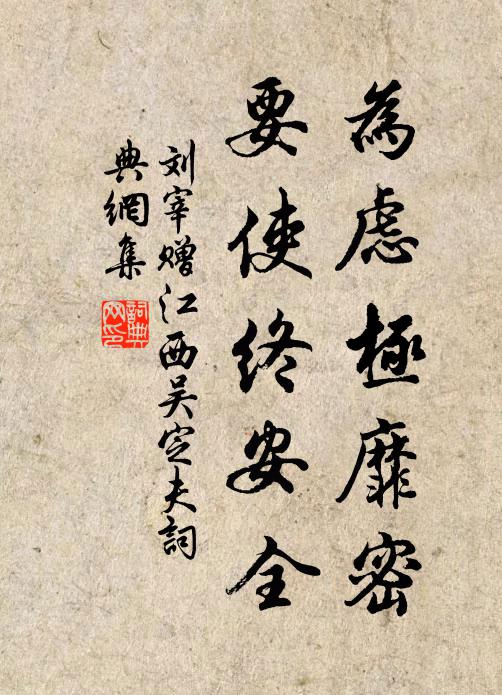 為慮極靡密
要使終安全
刘宰赠江西吴定夫詞
典網集
詞典
网印